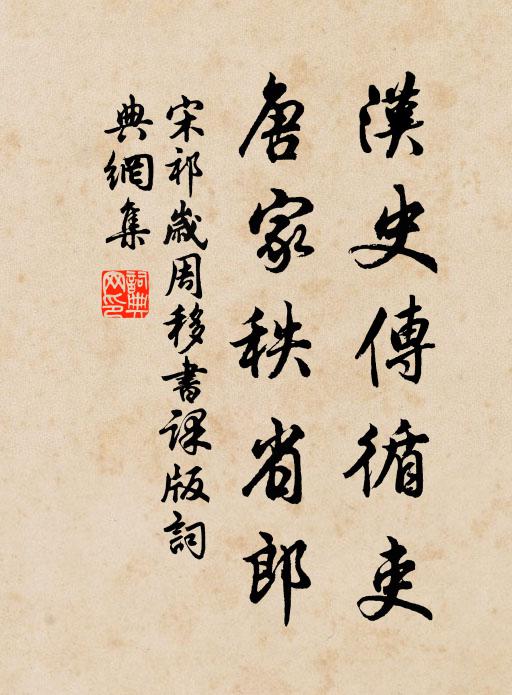 漢史傳循吏
唐家秩省郎
宋祁歲周移書課版詞
典網集
詞典網印